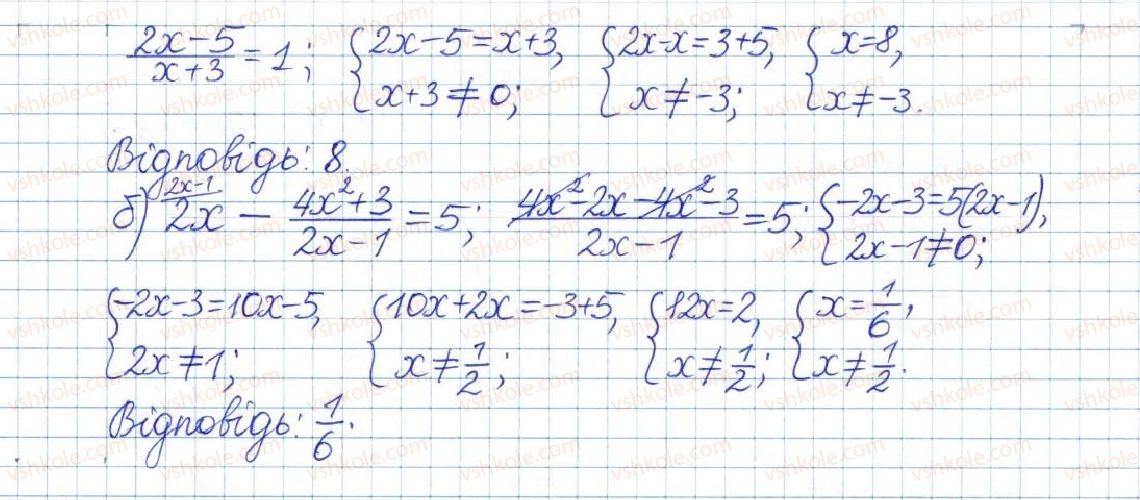 (2x-5)/(x+3) = 1; { 2x-5=x+3, x+3≠0; { 2x-x=3+5, x≠-3; { x=8, x≠-3.
Відповідь: 8.
б) 2x^{(2x-1} - (4x²+3)/(2x-1) = 5; (4x²-2x-4x²-3)/(2x-1) = 5; { -2x-3=5(2x-1), 2x-1≠0;
{ -2x-3=10x-5, 2x≠1; { 10x+2x=-3+5, x≠1/2; { 12x=2, x≠1/2; { x=1/6, x≠1/2.
Відповідь: 1/6.